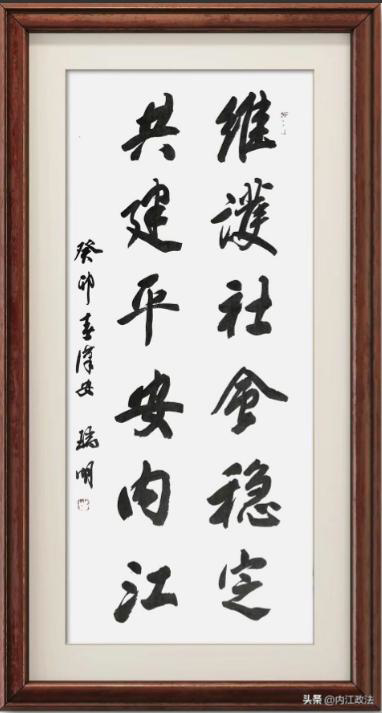 维护社会稳定
共建平安内江
癸卯春汉安 瑞明
头条 @内江政法